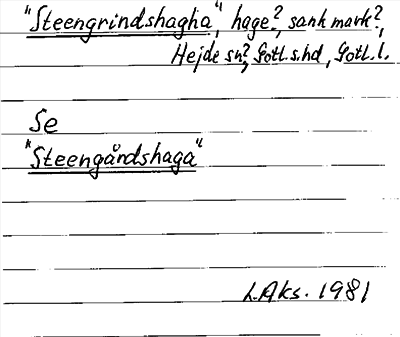 "Steengrindshagha", hage?, sank mark?,
Hejde sn?, Gotl.s.hd, Gotl.l.
Se
"Steengårdshaga"
L.Aks. 1981